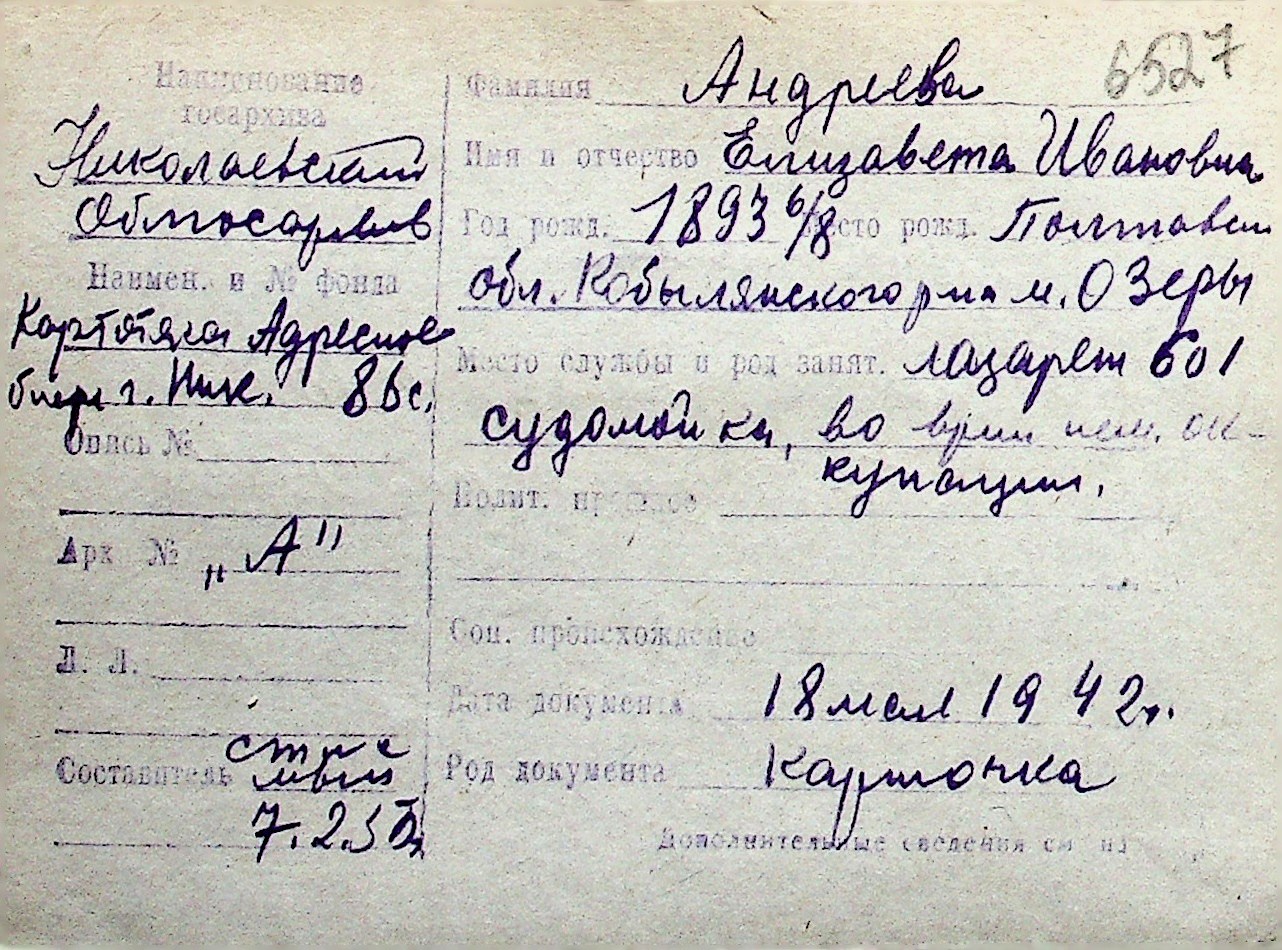 6527
Наименование
госархива
Николаевский
Облгосархив
Наимен. и № фонда
Картотека Адресное
бюро г. Ник. 86с.
Опись №
Арх №
„А"
Л. Л.
Составитель
7.2.
Фамилия Андреева
Имя и отчество Елизавета Ивановна
Год рожд. 1893 6/8 Место рожд. Полтавск
обл. Кобылянского р-на м. Озеры
Место службы и род занят. лазарет 601
судомойка, во врем нем. ок-
купации.
Полит. прошлое
Соц. происхождение
Дата документа 18 мая 1942г.
Род документа Карточка
Дополнительные сведения см. на